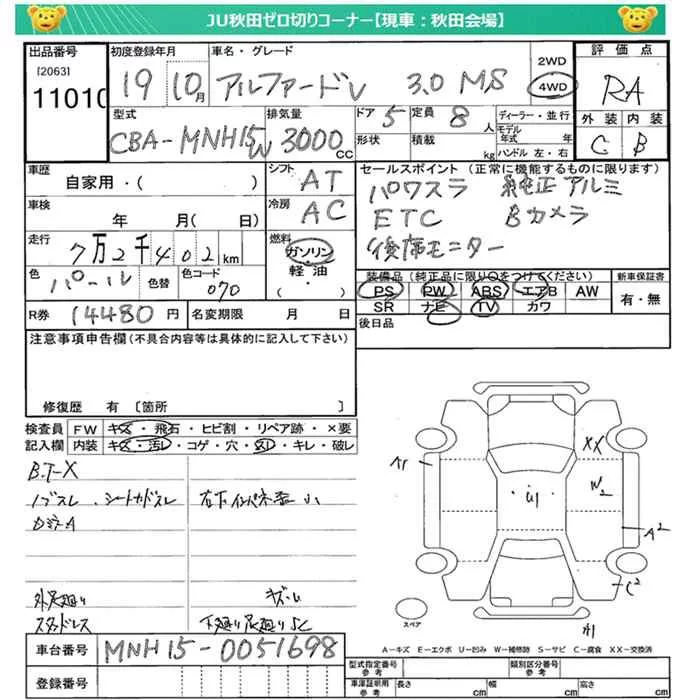 JU秋田ゼロ切りコーナー【現車：秋田会場】
出品番号 初度登録年月 車名・グレード 2WD 評価点
[2063] 19 10月 アルファードV 3.0 MS 4WD RA
11010
型式 排気量 ドア 定員 ディーラー・並行 外装 内装
CBA-MNH15W 3000cc 5 8人 モデル年式 年 C B
形状 積載 kg ハンドル 左・右
車歴 シフト セールスポイント（正常に機能するものに限ります）
自家用・( ) AT パワスラ 純正アルミ
車検 冷房 ETC Bカメラ
年 月( 日) AC 後席モニター
走行 7万2千402km 燃料
ガソリン・軽油・
色 パール 色替 色コード 070 装備品（純正品に限り○をつけてください） 新車保証書
PS PW ABS エアB AW 有・無
SR ナビ TV カワ
R券 14480円 名変期限 月 日 後日品
注意事項申告欄（不具合内容等は具体的に記入して下さい）
修復歴 有 〔箇所 〕
検査員 FW キズ・飛石・ヒビ割・リペア跡・×要
記入欄 内装 キズ・汚レ・コゲ・穴・スレ・キレ・破レ
B.T-X
ノブスレ・シートカドスレ
A1
XX
W2
U1
A2
C2
外足廻り
スタッドレス 下廻り足廻りSC
スペア
A－キズ E－エクボ U－凹み W－補修跡 S－サビ C－腐食 XX－交換済
車台番号 MNH15-0051698
登録番号
型式指定番号 参考 類別区分番号 参考
車庫証明用 参考 長さ cm 幅 cm 高さ cm